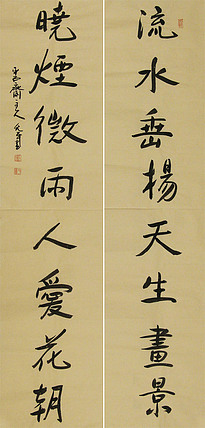 流水垂楊天生畫景
曉煙微雨人愛花朝